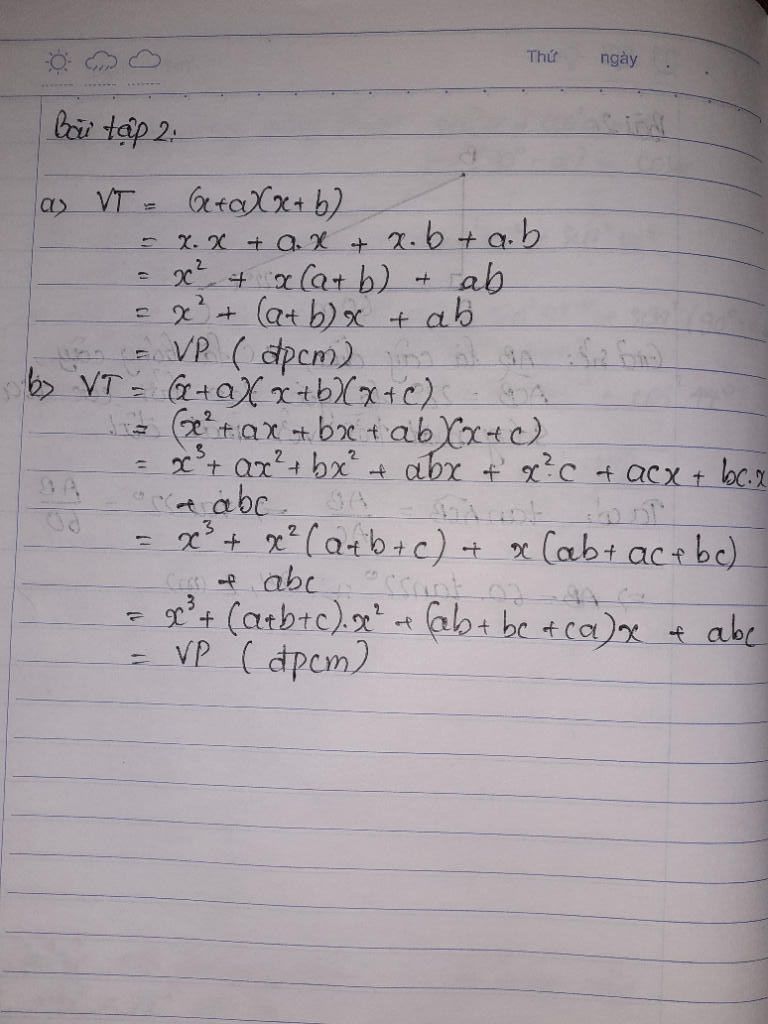 Thứ ngày
Bài tập 2:
a) VT = (x+a)(x+b)
= x.x + a.x + x.b + a.b
= x² + x(a+b) + ab
= x² + (a+b)x + ab
= VP (đpcm)
b) VT = (x+a)(x+b)(x+c)
= (x²+ax+bx+ab)(x+c)
= x³+ax²+bx²+abx + x².c + acx + bc.x
+ abc
= x³ + x²(a+b+c) + x(ab+ac+bc)
+ abc
= x³+(a+b+c).x²+(ab+bc+ca)x + abc
= VP (đpcm)